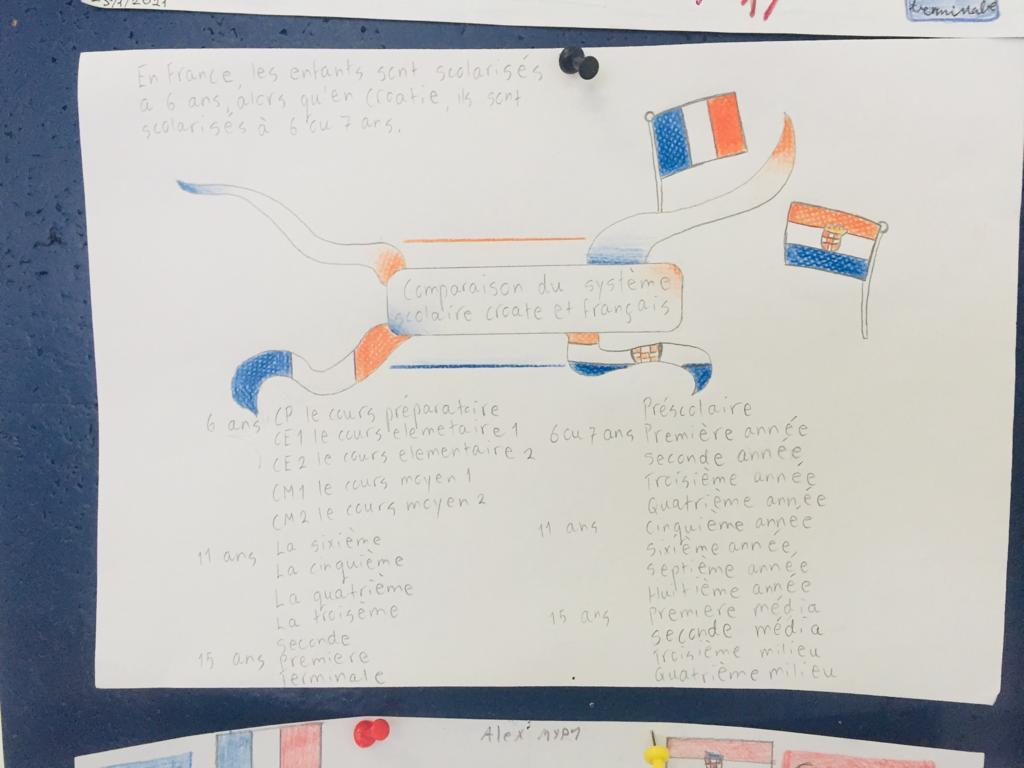 25/1/2021
terminale
En France, les enfants sont scolarisés
à 6 ans, alors qu'en Croatie, ils sont
scolarisés à 6 ou 7 ans.
Comparaison du système
scolaire croate et français
6 ans CP le cours préparatoire
CE1 le cours elemetaire 1
CE2 le cours elementaire 2
CM1 le cours moyen 1
CM2 le cours moyen 2
11 ans La sixième
La cinquième
La quatrième
La troisème
seconde
15 ans Premiere
Terminale
Préscolaire
6 ou 7 ans Première année
seconde année
Troisième année
Quatrième année
11 ans Cinquième année
sixième année,
septième année
Huitième année
15 ans Premiere média
seconde média
Troisième milieu
Quatrième milieu
Alex MYP1